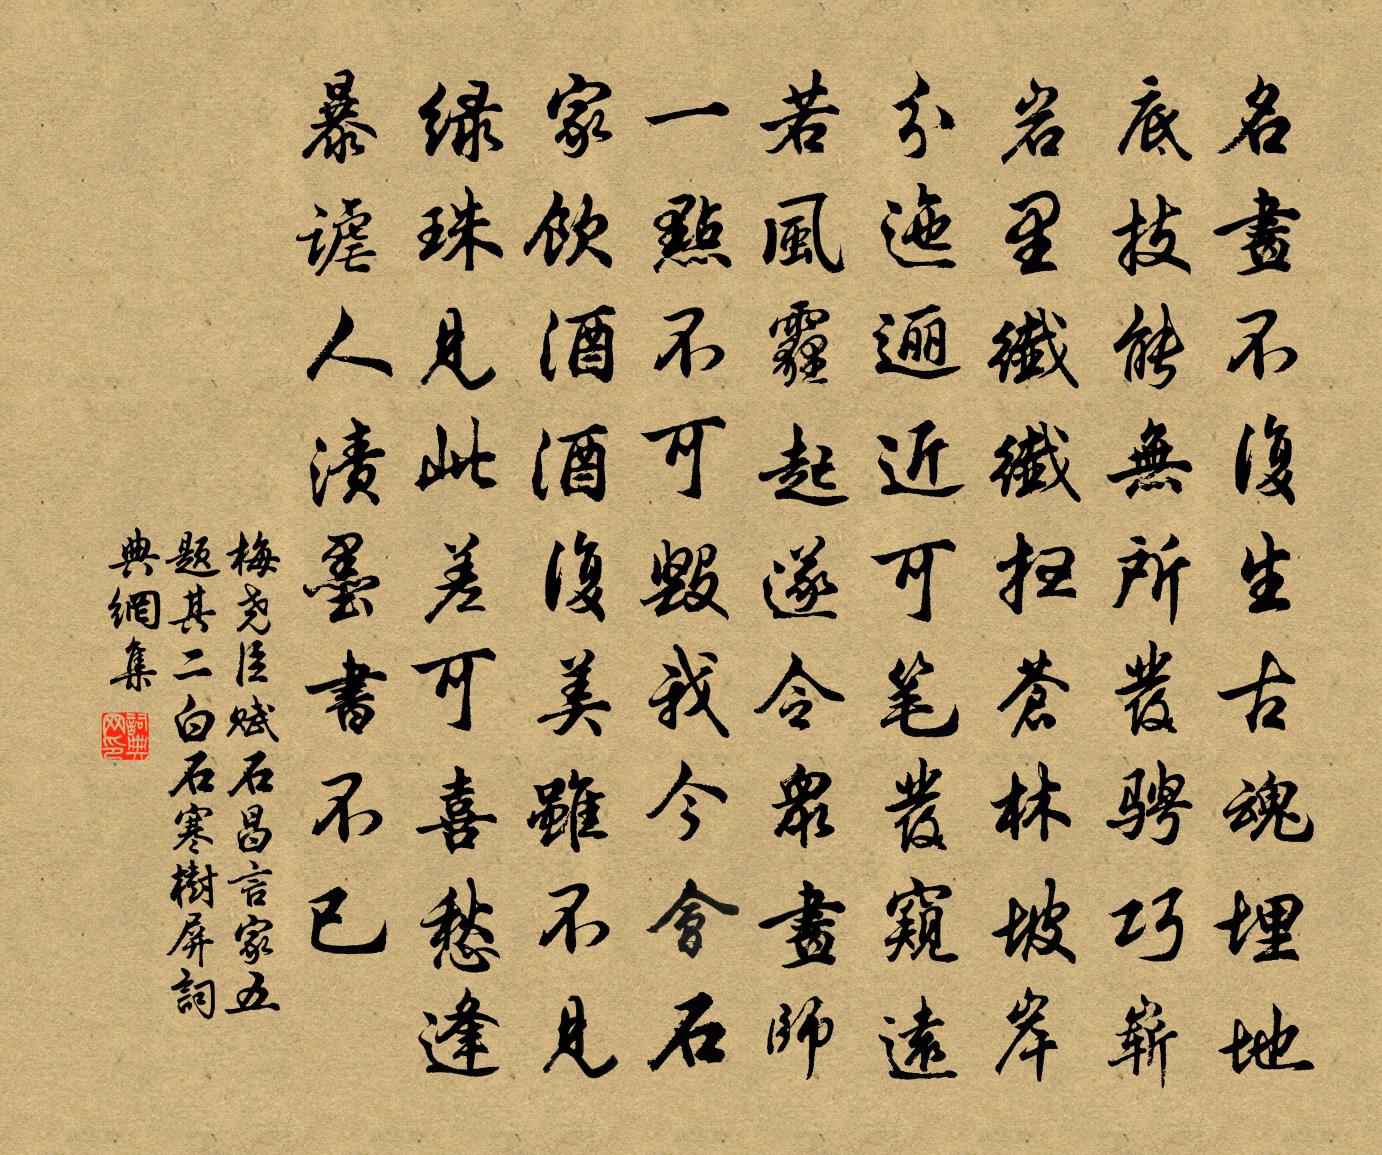 名畫不復生古魂埋地
底技能無所發騁巧嶄
岩里纖纖扭蒼林坡岸
分迤逦近可笔發窺遠
若風霾起遂令衆畫師
一點不可毀我今會石
家飲酒酒復美雖不見
緑珠見此差可喜愁逢
暴謔人漬墨書不已
梅尧臣赋石昌言家五
题其二白石寒樹屏詞
典網集
詞典网印